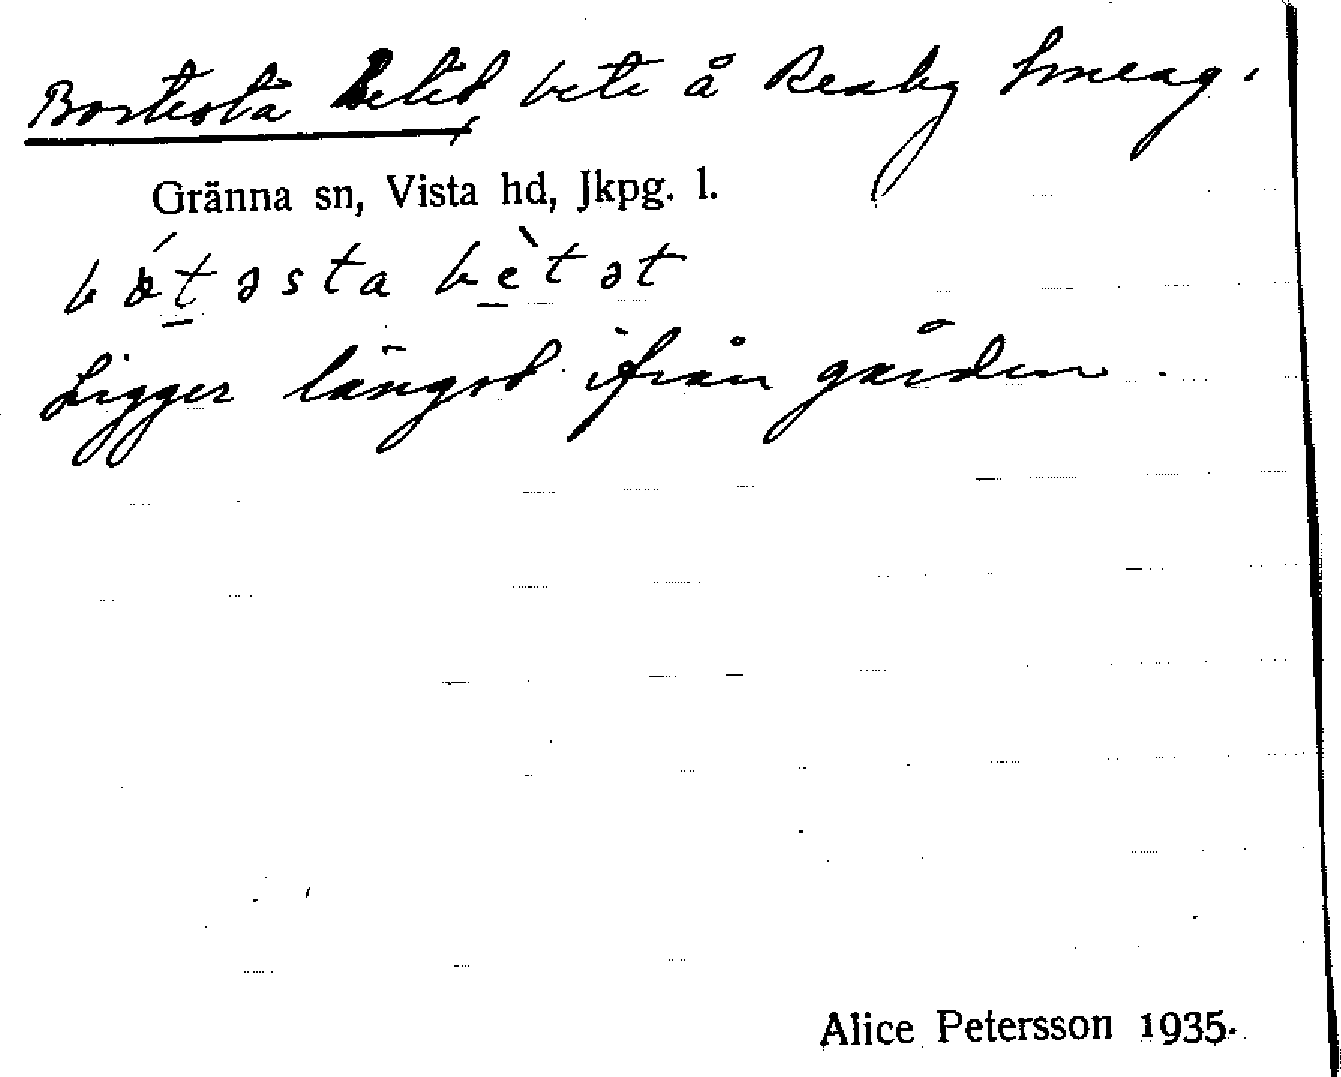 Bortesta Betet, bete å Reaby Smeag.
Gränna sn, Vista hd, Jkpg. l.
bo̱t́əsta bè̱tət
Ligger längst ifrån gården.
Alice Petersson 1935.